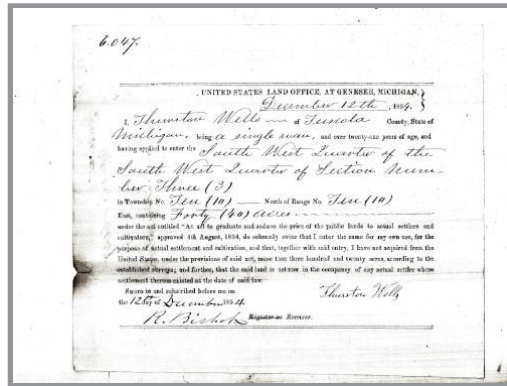 6.047.
UNITED STATES LAND OFFICE, AT GENESEE, MICHIGAN, }
December 12th, 1854. }
I, Thurston Wells of Tuscola County, State of
Michigan, being a single man, and over twenty-one years of age, and
having applied to enter the South West Quarter of the
South West Quarter of Section Num-
ber Three (3)
in Township No. Ten (10) North of Range No. Ten (10)
East, containing Forty (40) acres
under the act entitled "An act to graduate and reduce the price of the public lands to actual settlers and
cultivators," approved 4th August, 1854, do solemnly swear that I enter the same for my own use, for the
purpose of actual settlement and cultivation, and that, together with said entry, I have not acquired from the
United States, under the provisions of said act, more than three hundred and twenty acres, according to the
established surveys; and further, that the said land is not now in the occupancy of any actual settler whose
settlement thereon existed at the date of said law.
Sworn to and subscribed before me on
the 12th day of December 1854. Thurston Wells
R. Bishop Register or Receiver.